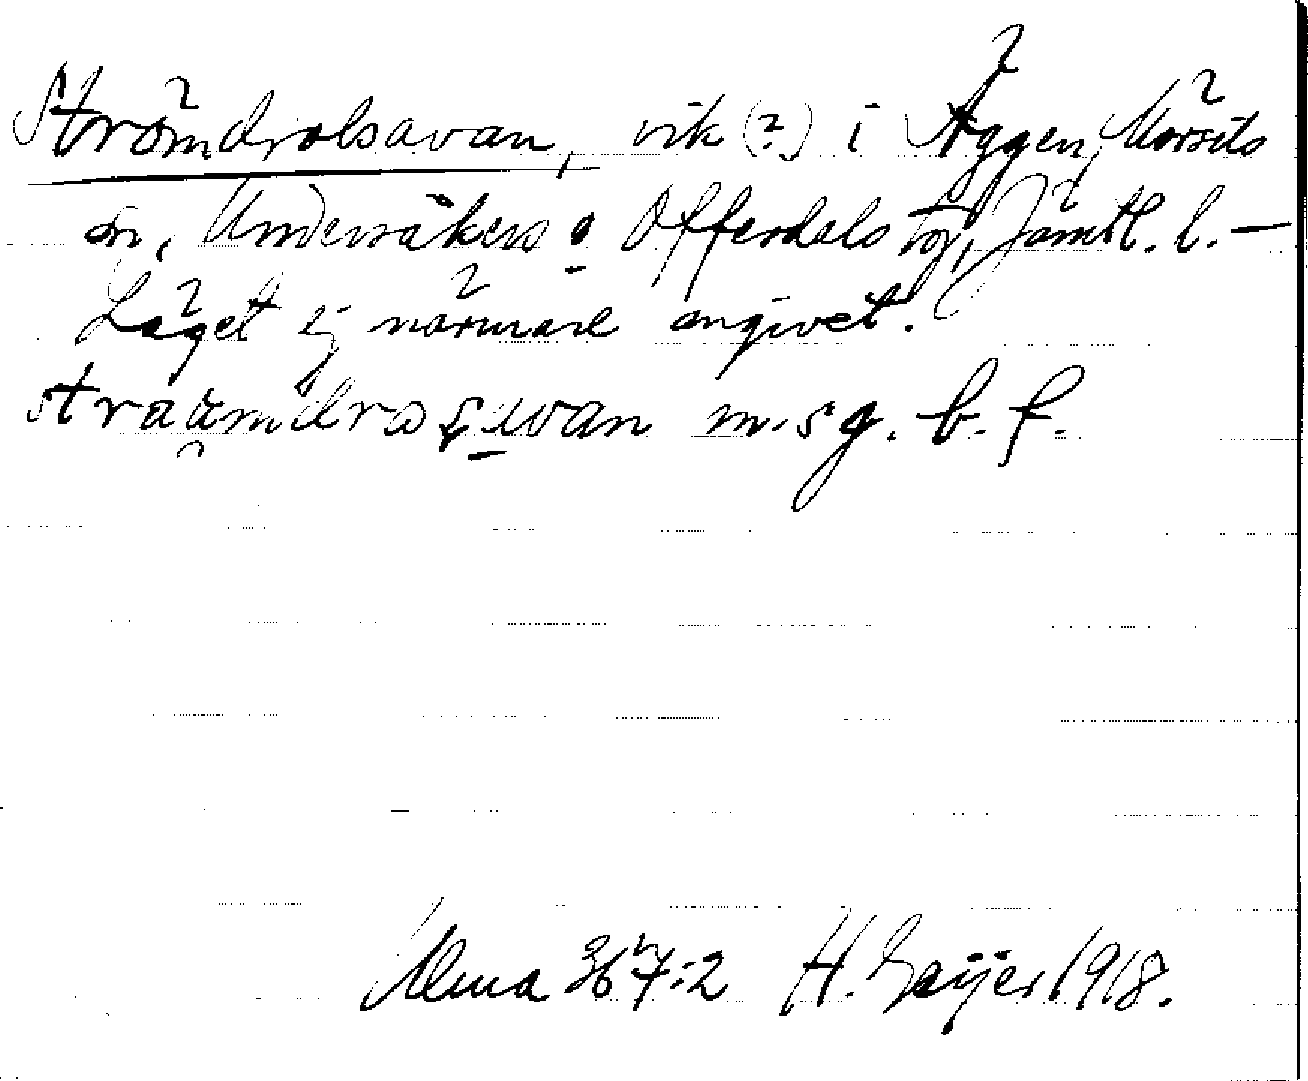 Strömdrolsavan, vik (?) i Äggen, Mörsils
sn, Undersåkers o Offerdals tg, Jämtl. l. –
Läget ej närmare angivet.
m. sg. b. f.
Ulma 367:2 H. Geijer 1918.